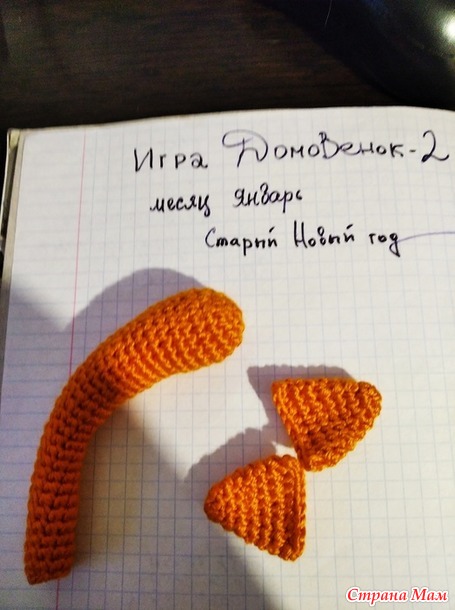 Игра Домовенок-2
месяц январь
Старый Новый год
Страна Мам